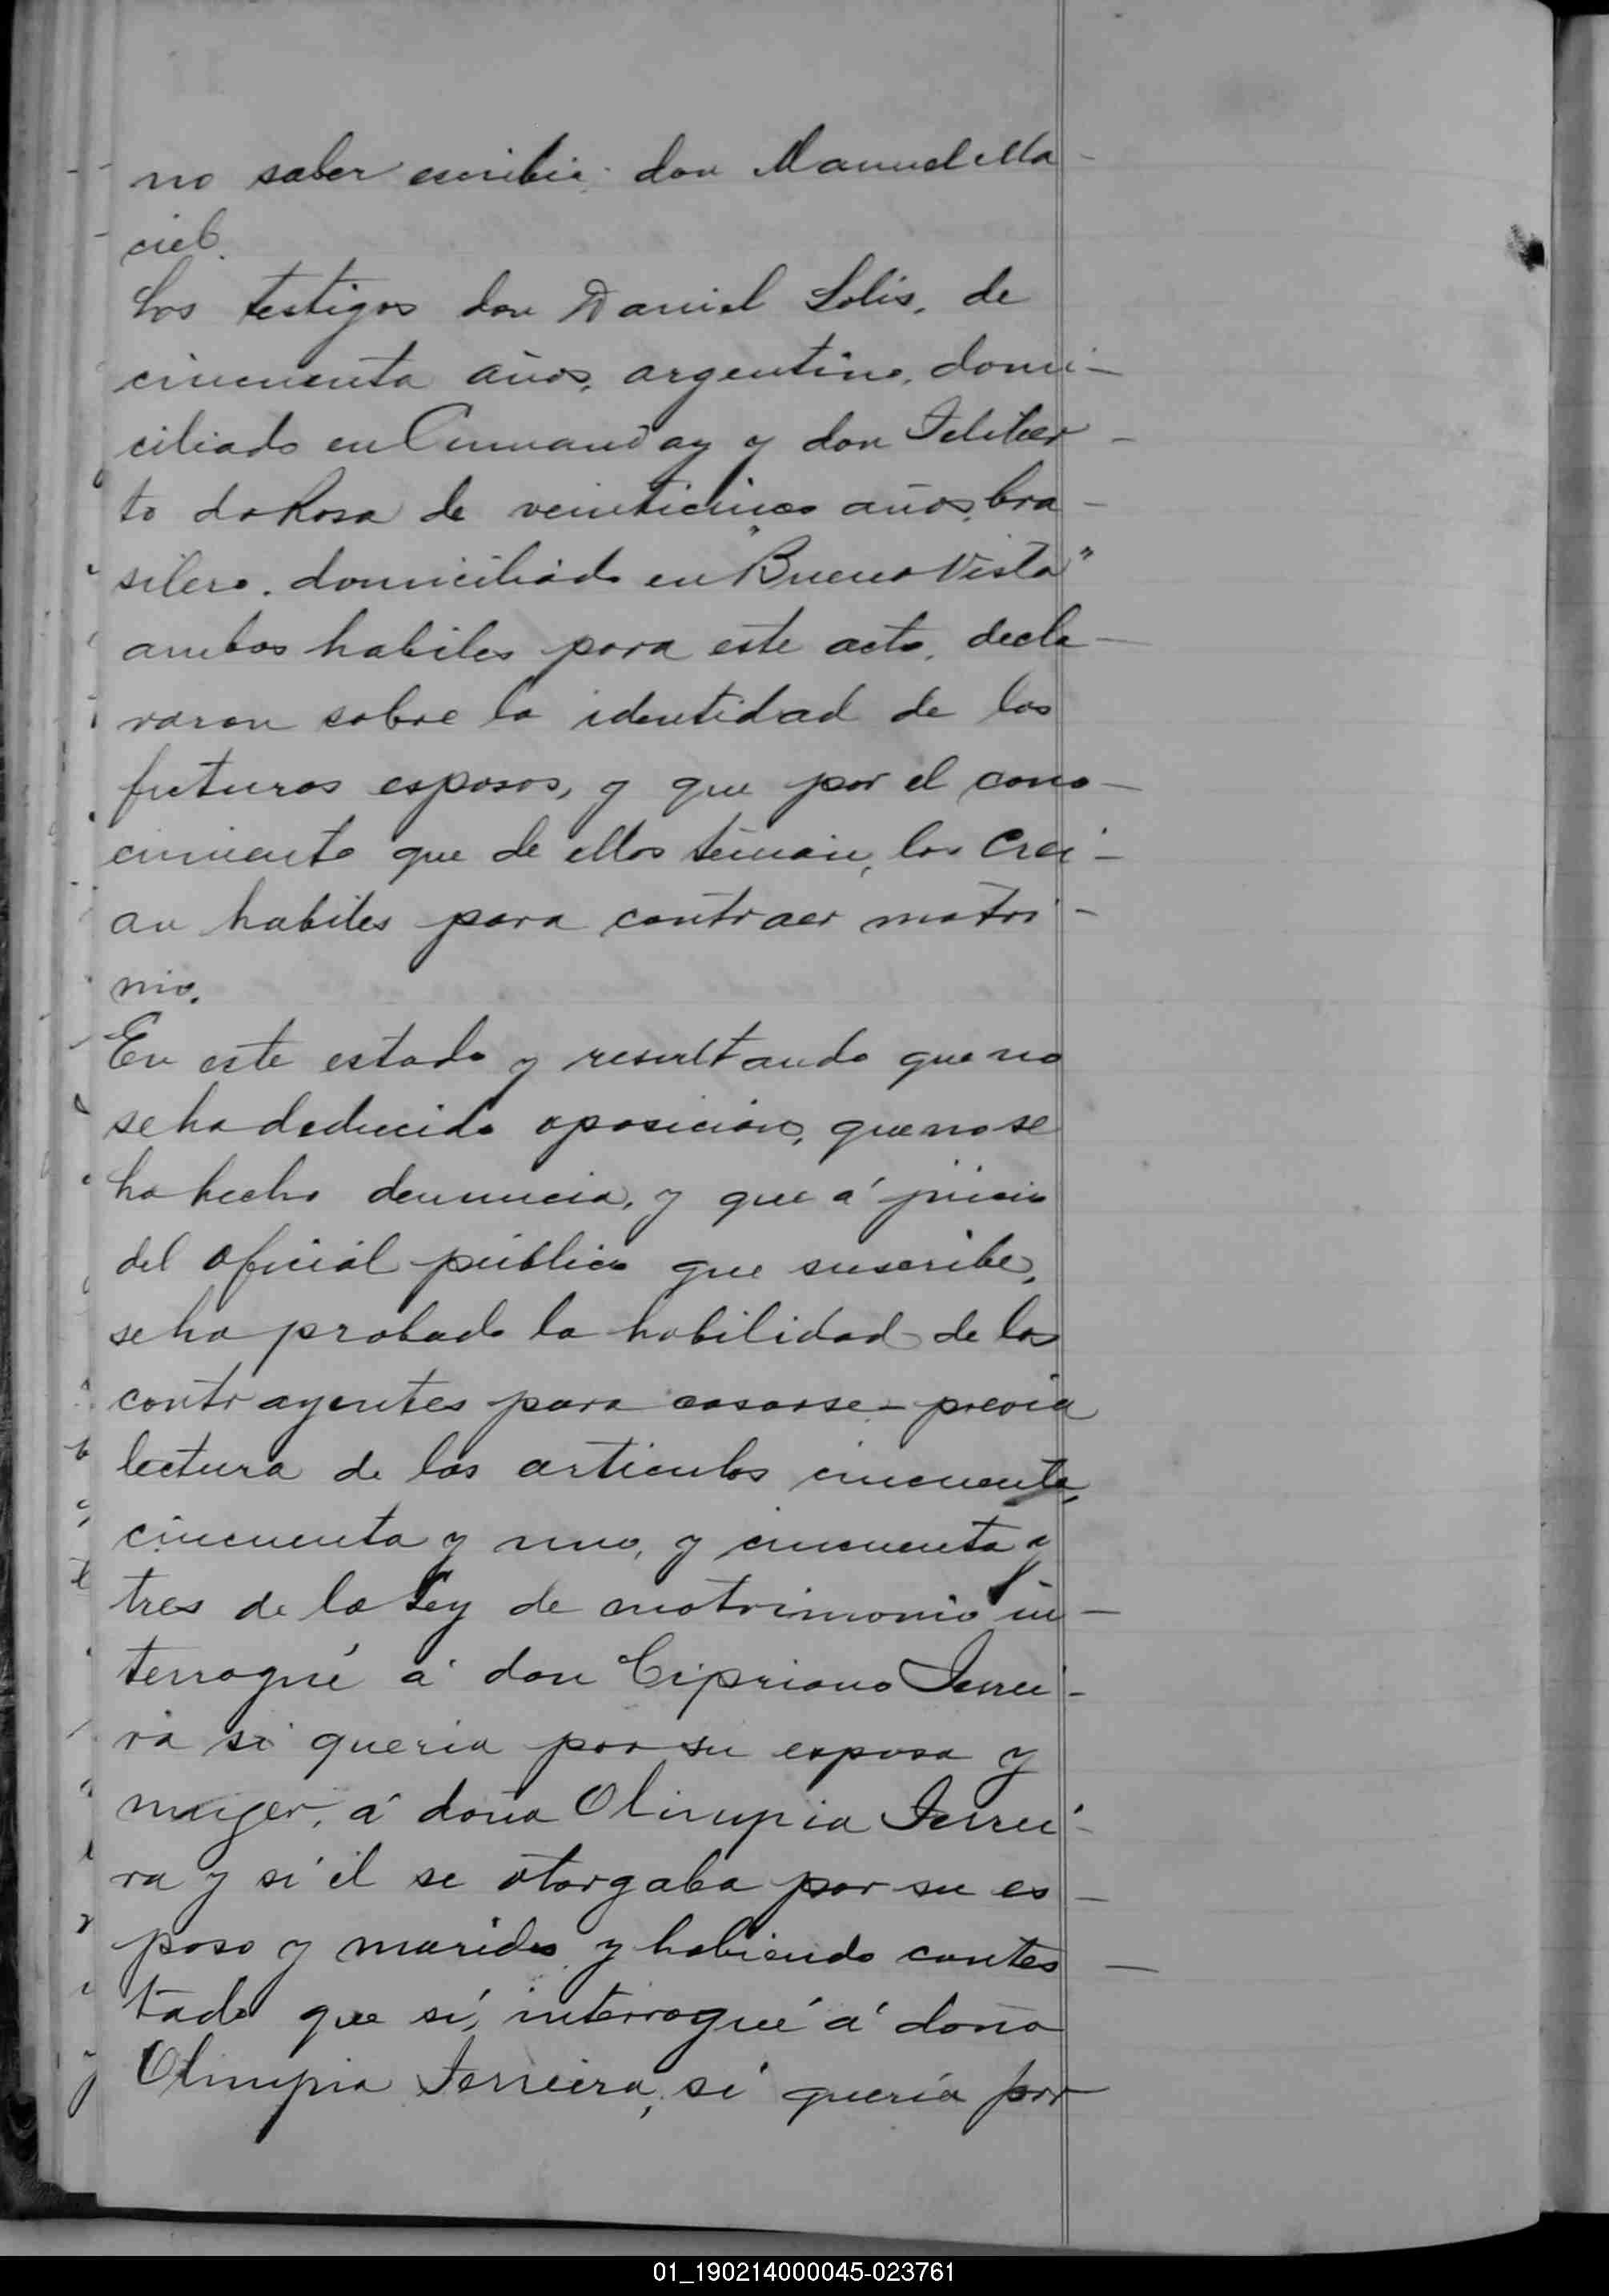 no saber escribir don Manuel Ma
ciel.
Los testigos don Daniel Solis, de
cincuenta años, argentino, domi-
ciliado en Cunanday y don Filiber-
to da Rosa de veinticinco años, bra-
silero, domiciliado en "Buena Vista"
ambos habiles para este acto, decla-
raron sobre la identidad de los
futuros esposos, y que por el cono-
cimiento que de ellos tenian, los crei-
an habiles para contraer matri-
nio.
En este estado y resultando que no
se ha deducido oposicion, que no se
ha hecho denuncia, y que á juicio
del oficial público que suscribe,
se ha probado la habilidad de los
contrayentes para casarse - previa
lectura de los articulos cincuenta,
cincuenta y uno, y cincuenta y
tres de la Ley de matrimonio in-
terrogué á don Cipriano Ferrei-
ra si queria por su esposa y
muger, á doña Olimpia Ferrei-
ra y si él se otorgaba por su es-
poso y marido, y habiendo contes-
tado que sí, interrogué á doña
Olimpia Ferreira, si quería por
01_190214000045-023761